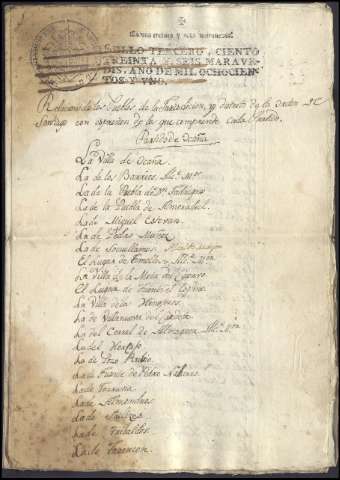 SELLO TERCERO, CIENTO
TREINTA Y SEIS MARAVE-
DIS, AÑO DE MIL OCHOCIEN-
TOS Y UNO.
Relacion de los Pueblos de la Jurisdiccion, y distrito de la Orden de
Santiago con expresion de lo que comprende cada Partido.
Partido de Ocaña
La Villa de Ocaña.
La de los Barrios
La de la Puebla de Dn. Fadrique
La de la Puebla de Almoradiel.
La de Miguel Estevan
La de Pedro Muñoz
La de Socuellamos,
El Lugar de Tomelloso
La Villa de la Mota del Cuervo
El Lugar de
La Villa de la Hinojosa
La de Villanueva del Cardete
La del Corral de Almaguer
La del
La de Pozo Rubio
La de Fuente de Pedro Naharro
La de
La de Almendros
La de
La de Tribaldos
La de Tarancon